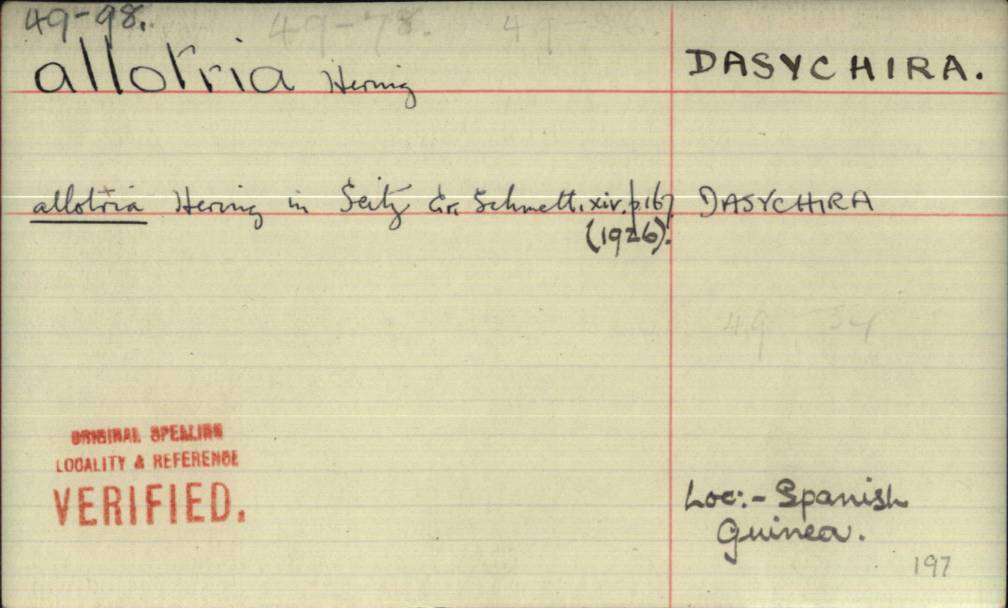 49-98.
allotria Hering DASYCHIRA.
allotria Hering in Seitz Gr. Schmett. xiv. p.167 DASYCHIRA
(1926).
49 54
ORIGINAL SPELLING
LOCALITY & REFERENCE
VERIFIED.
Loc:- Spanish
Guinea.
197